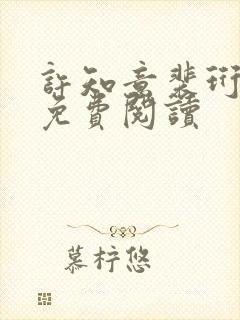 許知意裴珩
免費閱讀
慕梓悠